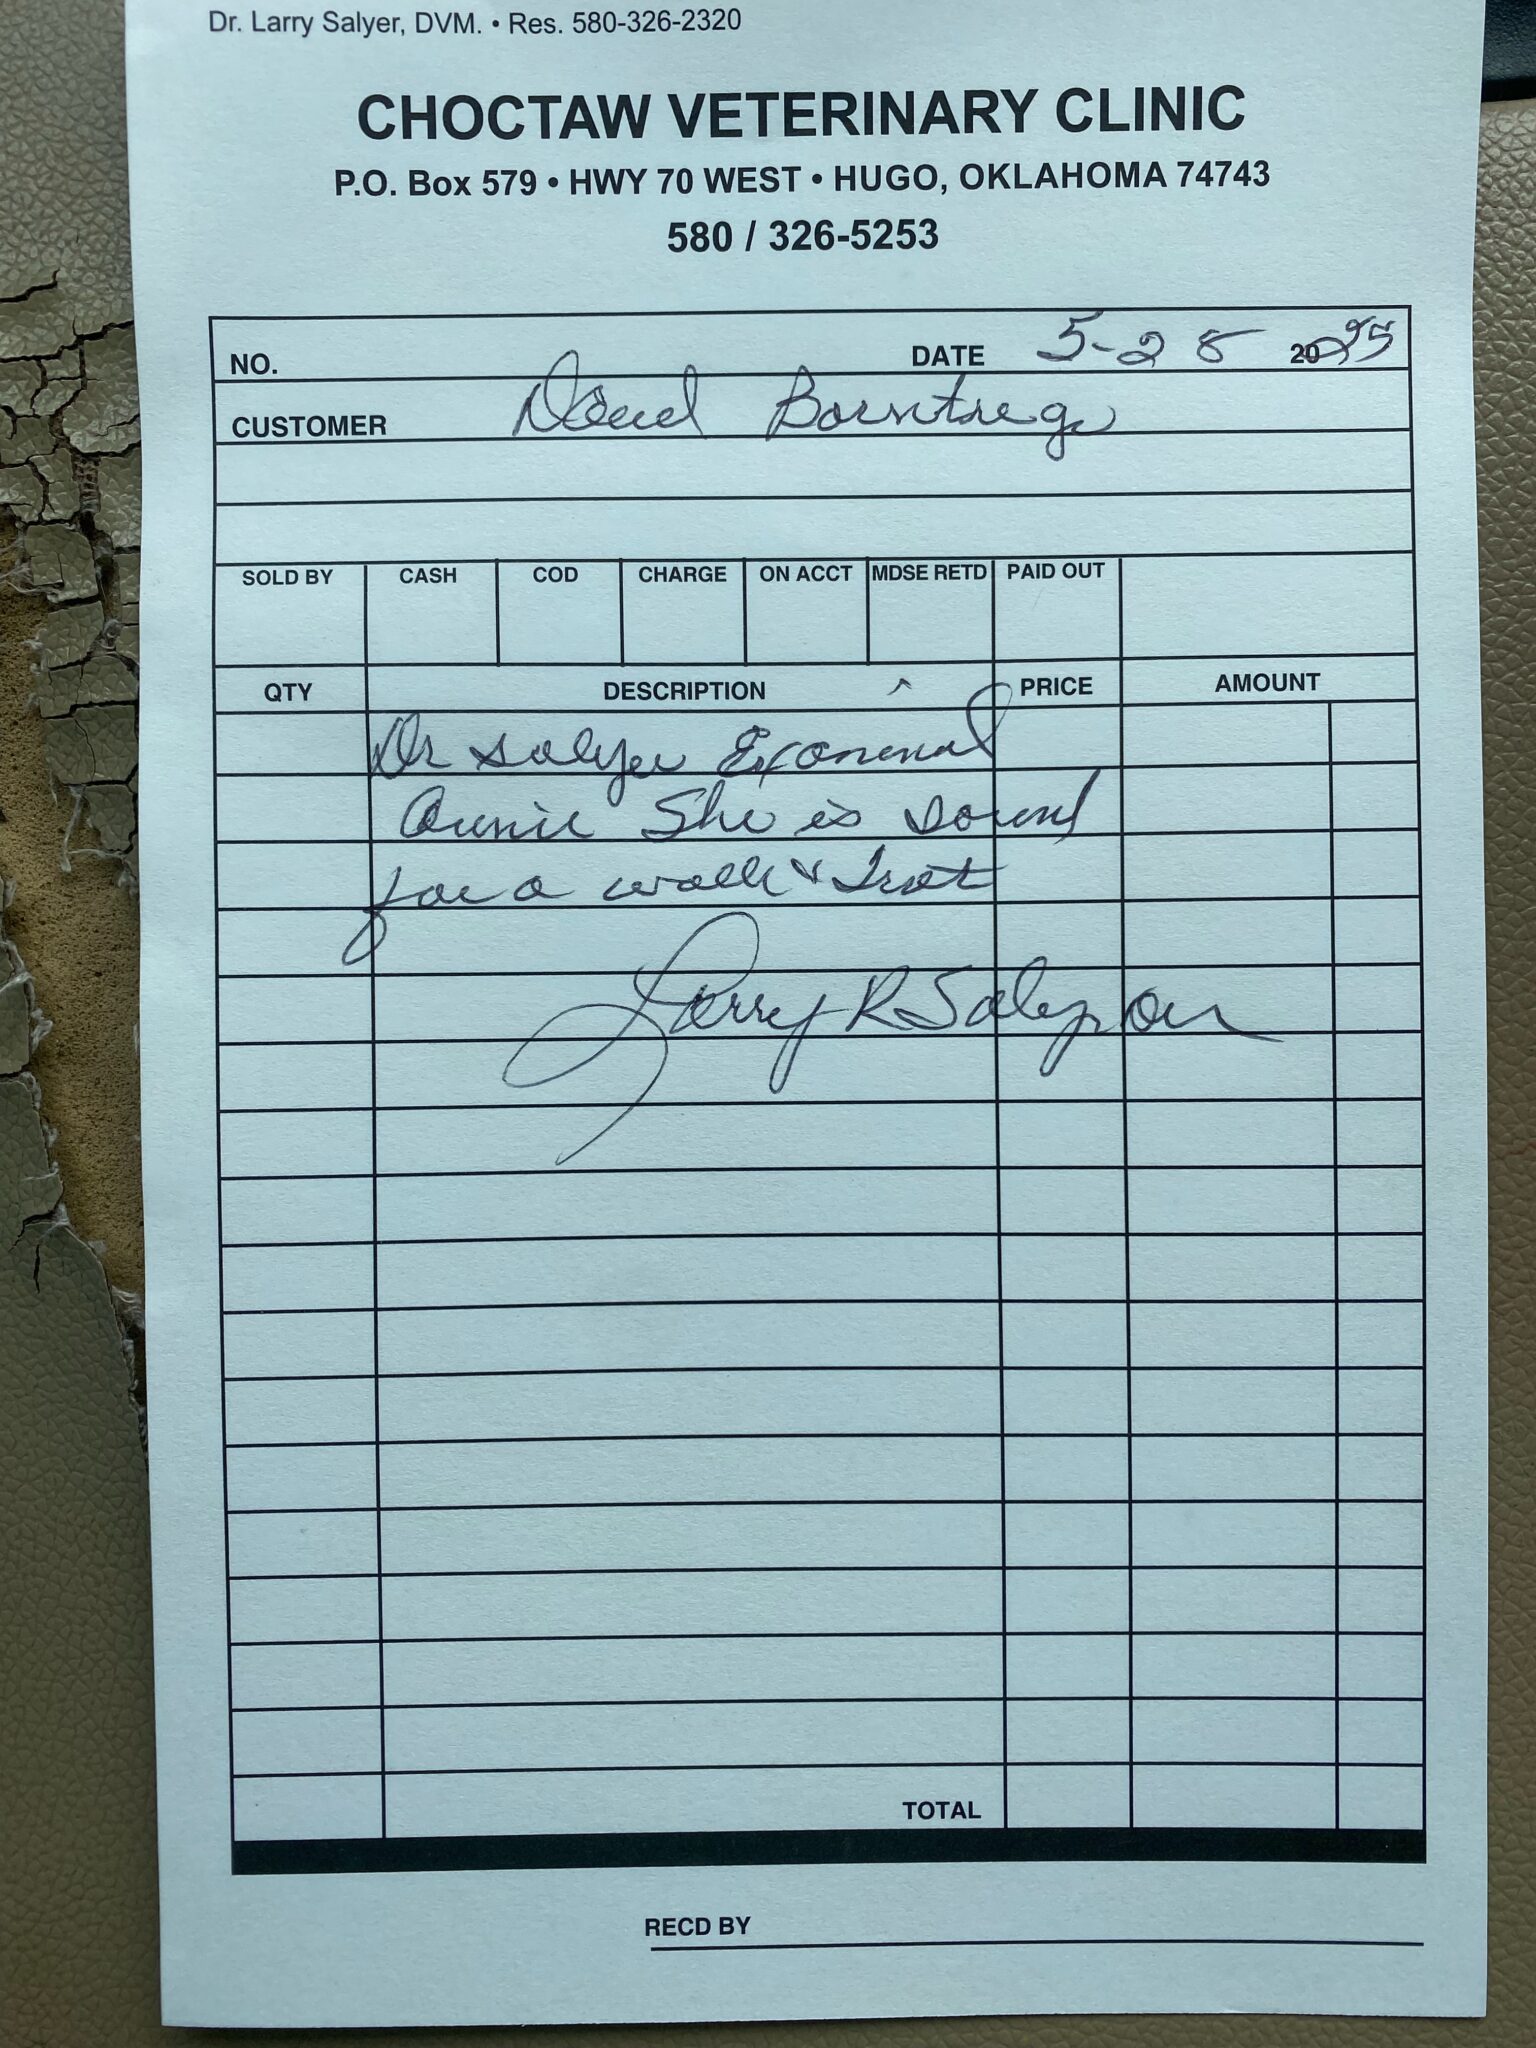 Dr. Larry Salyer, DVM. • Res. 580-326-2320
CHOCTAW VETERINARY CLINIC
P.O. Box 579 • HWY 70 WEST • HUGO, OKLAHOMA 74743
580 / 326-5253
NO. DATE 5-28 2025
CUSTOMER David
SOLD BY CASH COD CHARGE ON ACCT MDSE RETD PAID OUT
QTY DESCRIPTION PRICE AMOUNT
Dr Salyer
Annie She is sound
for a walk & trot
Larry R Salyer
TOTAL
RECD BY